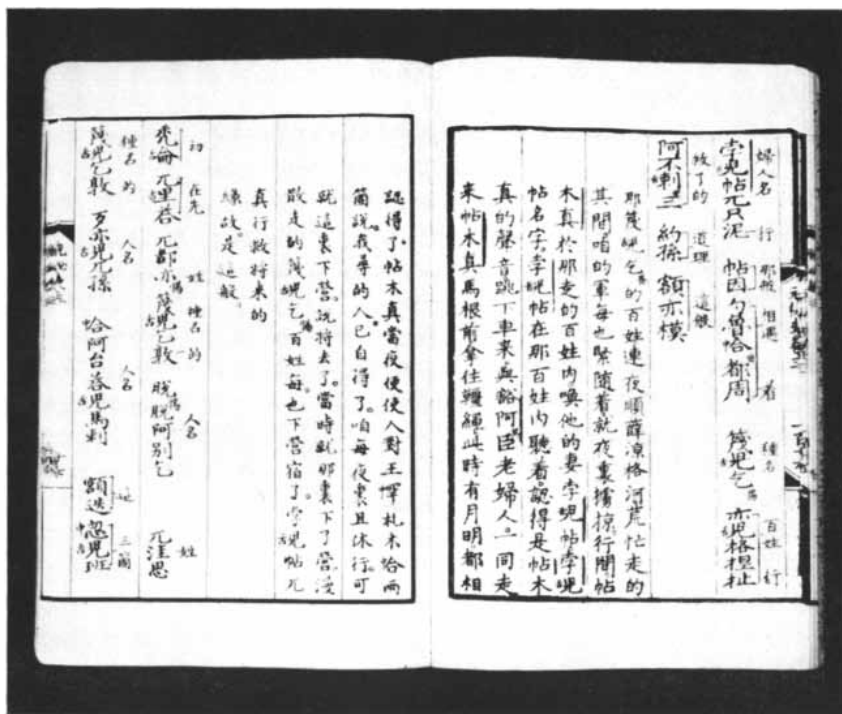 婦人名 行 那般 相遇 着 種名 百姓 行
孛兒帖兀只泥 帖因勺魯哈都周 篾兒乞 亦兒格捏扯
救了的 道理 這般
阿不剌三 約孫 額亦模
那篾兒乞的百姓連夜順薛涼格河荒忙走的
其間咱的軍每也緊隨着就夜裏擄掠行間帖
木真於那走的百姓內喚他的妻孛兒帖孛兒
帖名字孛兒帖在那百姓內聽着認得是帖木
真的聲音跳下車來與豁阿臣老婦人一同走
來帖木真馬根前拿住韁繩此時有月明都相
認得了帖木真當夜便使人對王罕札木哈兩
箇說我尋的人已自得了咱每夜裏且休行可
就這裏下營說將去了當時就那裏下了營漫
散走的篾兒乞百姓每也下營宿了孛兒帖兀
真行救將來的
緣故是這般
初 在先 姓 種名的 人名 姓
禿論 兀里荅 兀都亦篾兒乞敦 脫脫阿別乞 兀洼思
種名的 人名 人名 這 三箇
篾兒乞敦 歹亦兒兀孫 哈阿台荅兒馬剌 額迭 忽兒班